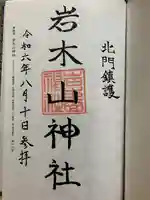 北門鎮護
岩木山神社
令和六年八月十日参拝